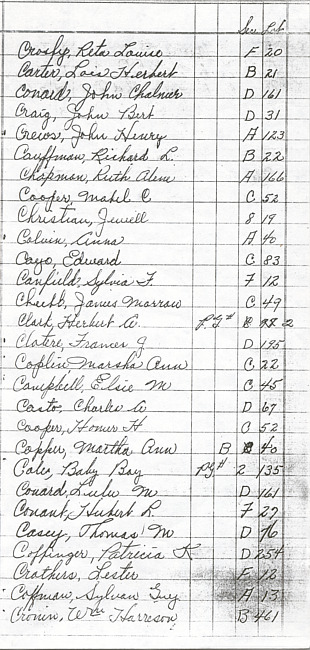 Sec. Lot
Crosby, Reta Louise F 20
Carter, Lois Herbert B 21
Conard, John Chalmer D 161
Craig, John Bert D 31
Crews, John Henry A 123
Cauffman, Richard L. B 22
Chapman, Ruth A 166
Cooper, Mabel C 52
Christian, Jewell 8 19
Colvin, Anna A 40
Cayo, Edward C 83
Canfield, Sylvia F. F 12
James Marrow C 49
Clark, Herbert A. P.G#
Frances J D 195
Coplin Marsha Ann C 22
Campbell, Elsie M C 45
Casto, Charles A D 67
Cooper, Homer H C 52
Copper, Martha Ann B 40
Coles, Baby Boy PG# 2 135
Conard, Lulu M. D 161
Conant, Hubert L. F 27
Casey, Thomas M D 76
Coffinger, Patricia K D 254
Crathers, Lester F 12
Coffman, Sylvan Guy A 13
Cronin, Wm Harreson, B 461